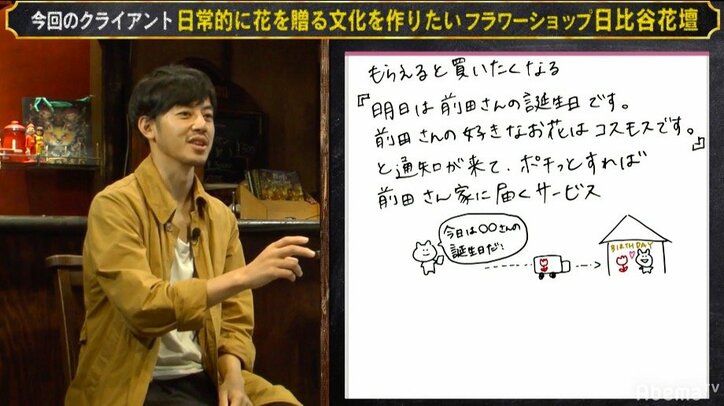 今回のクライアント 日常的に花を贈る文化を作りたい フラワーショップ 日比谷花壇
もらえると買いたくなる
『明日は前田さんの誕生日です。
前田さんの好きなお花はコスモスです。』
と通知が来て、ポチっとすれば
前田さん家に届くサービス
今日は〇〇さんの
誕生日だ!
BIRTHDAY
AbemaTV